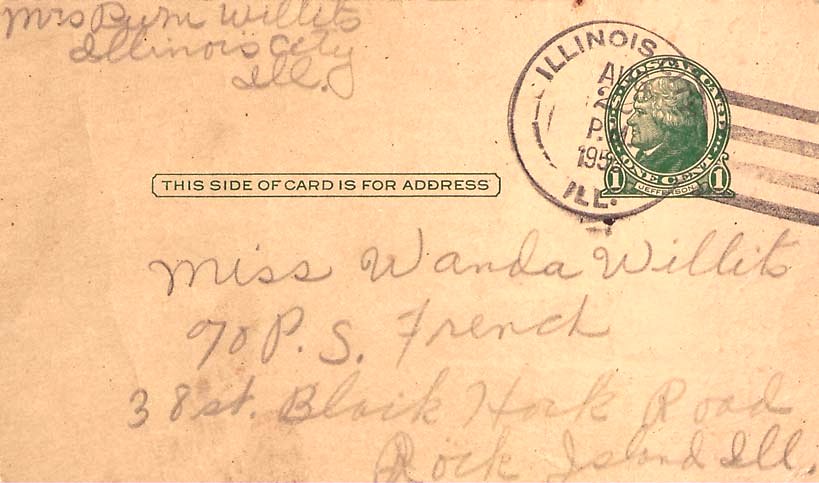 Mrs Burn Willits
Illinois City
Ill.
ILLINOIS
P.
195
ILL.
U.S. POSTAL CARD
ONE CENT
1 JEFFERSON 1
THIS SIDE OF CARD IS FOR ADDRESS
Miss Wanda Willits
% P. S. French
38 st. Black Hock Road
Rock Island Ill.